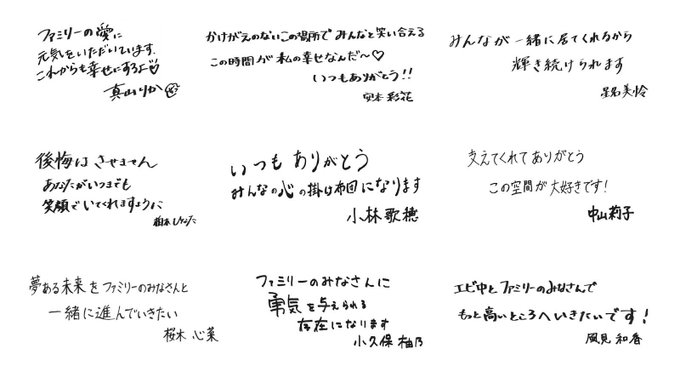 ファミリーの愛に
元気をいただいています。
これからも幸せにするよ♡
真山りか
かけがえのないこの場所で みんなと笑い合える
この時間が 私の幸せなんだ〜♡
いつもありがとう!!
安本 彩花
みんなが 一緒に居てくれるから
輝き続けられます
星名美怜
後悔は させません
あなたがいつまでも
笑顔でいてくれますように
柏木ひなた
いつも ありがとう
みんなの心の掛け布団になります
小林歌穂
支えてくれて ありがとう
この空間が 大好きです!
中山莉子
夢ある未来を ファミリーのみなさんと
一緒に進んでいきたい
桜木 心菜
ファミリーのみなさんに
勇気を与えられる
存在になります
小久保 柚乃
エビ中とファミリーのみなさんで
もっと高いところへいきたいです!
風見 和香